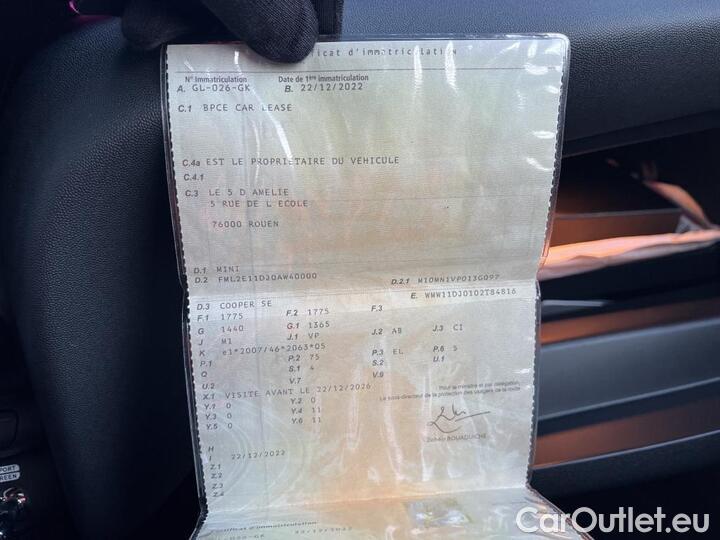 d'immatriculation
N° Immatriculation Date de 1ère immatriculation
A. GL-026-GK B. 22/12/2022
C.1 BPCE CAR LEASE
C.4a EST LE PROPRIETAIRE DU VEHICULE
C.4.1
C.3 LE 5 D AMELIE
5 RUE DE L ECOLE
76000 ROUEN
D.1 MINI
D.2 FML2E11DJ0AW40000 D.2.1 M10MN1VP013G097
E. WMW11DJ0102T84816
D.3 COOPER SE
F.1 1775 F.2 1775 F.3
G 1440 G.1 1365
J M1 J.1 VP J.2 AB J.3 CI
K e1*2007/46*2063*05
P.1 P.2 75 P.3 EL P.6 5
Q S.1 4 S.2 U.1
U.2 V.7 V.9
X.1 VISITE AVANT LE 22/12/2026
Y.1 0 Y.2 0
Y.3 0 Y.4 11
Y.5 0 Y.6 11
Pour le ministre et par délégation,
Le sous-directeur de la protection des usagers de la route
BOUAOUICHE
H
I 22/12/2022
Z.1
Z.2
Z.3
Z.4
d'immatriculation
22/12/2022
CarOutlet.eu